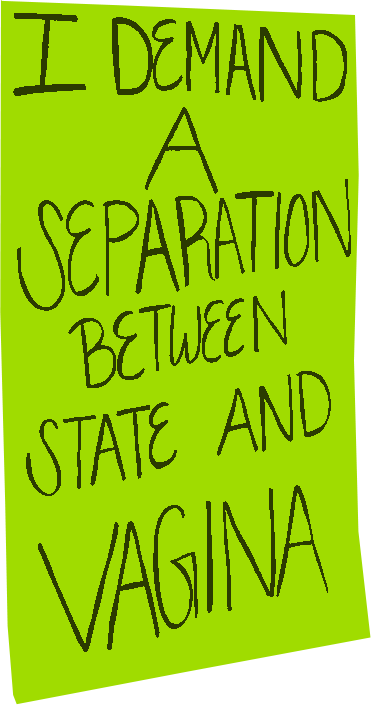 I DEMAND
A
SEPARATION
BETWEEN
STATE AND
VAGINA